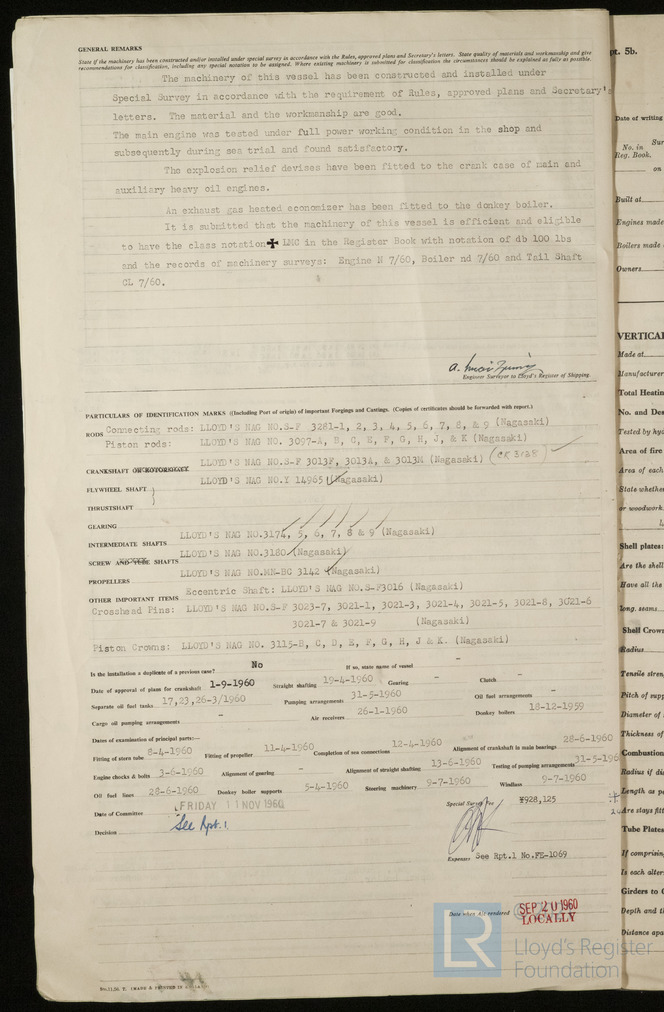 GENERAL REMARKS
State if the machinery has been constructed and/or installed under special survey in accordance with the Rules, approved plans and Secretary's letters. State quality of materials and workmanship and give
recommendations for classification, including any special notation to be assigned. Where existing machinery is submitted for classification the circumstances should be explained as fully as possible.
The machinery of this vessel has been constructed and installed under
Special Survey in accordance with the requirement of Rules, approved plans and Secretary's
letters. The material and the workmanship are good.
The main engine was tested under full power working condition in the shop and
subsequently during sea trial and found satisfactory.
The explosion relief devises have been fitted to the crank case of main and
auxiliary heavy oil engines.
An exhaust gas heated economizer has been fitted to the donkey boiler.
It is submitted that the machinery of this vessel is efficient and eligible
to have the class notation ✠ LMC in the Register Book with notation of db 100 lbs
and the records of machinery surveys: Engine N 7/60, Boiler nd 7/60 and Tail Shaft
CL 7/60.
Engineer Surveyor to Lloyd's Register of Shipping.
PARTICULARS OF IDENTIFICATION MARKS (Including Port of origin) of important Forgings and Castings. (Copies of certificates should be forwarded with report.)
RODS Connecting rods: LLOYD'S NAG NO.S-F 3281-1, 2, 3, 4, 5, 6, 7, 8, & 9 (Nagasaki)
Piston rods: LLOYD'S NAG NO. 3097-A, B, C, E, F, G, H, J, & K (Nagasaki)
CRANKSHAFT OR ROTORSHAFT LLOYD'S NAG NO.S-F 3013F, 3013A, & 3013M (Nagasaki) (CK 3138)
FLYWHEEL SHAFT LLOYD'S NAG NO.Y 14965 (Nagasaki)
THRUSTSHAFT
GEARING
INTERMEDIATE SHAFTS LLOYD'S NAG NO.3174, 5, 6, 7, 8 & 9 (Nagasaki)
SCREW AND TUBE SHAFTS LLOYD'S NAG NO.3180 (Nagasaki)
PROPELLERS LLOYD'S NAG NO.MN-BC 3142 (Nagasaki)
OTHER IMPORTANT ITEMS Eccentric Shaft: LLOYD'S NAG NO.S-F3016 (Nagasaki)
Crosshead Pins: LLOYD'S NAG NO.S-F 3023-7, 3021-1, 3021-3, 3021-4, 3021-5, 3021-8, 3021-6
3021-7 & 3021-9 (Nagasaki)
Piston Crowns: LLOYD'S NAG NO. 3115-B, C, D, E, F, G, H, J & K. (Nagasaki)
Is the installation a duplicate of a previous case? No If so, state name of vessel -
Date of approval of plans for crankshaft 1-9-1960 Straight shafting 19-4-1960 Gearing - Clutch -
Separate oil fuel tanks 17,23,26-3/1960 Pumping arrangements 31-5-1960 Oil fuel arrangements -
Cargo oil pumping arrangements - Air receivers 26-1-1960 Donkey boilers 18-12-1959
Dates of examination of principal parts:—
Fitting of stern tube 8-4-1960 Fitting of propeller 11-4-1960 Completion of sea connections 12-4-1960 Alignment of crankshaft in main bearings 28-6-1960
Engine chocks & bolts 3-6-1960 Alignment of gearing - Alignment of straight shafting 13-6-1960 Testing of pumping arrangements 31-5-1960
Oil fuel lines 28-6-1960 Donkey boiler supports 5-4-1960 Steering machinery 9-7-1960 Windlass 9-7-1960
Date of Committee FRIDAY 11 NOV 1960 Special Survey Fee ¥928,125
Decision See Rpt. 1.
Expenses See Rpt.1 No.FE-1069
Date when A/c rendered SEP 20 1960
LOCALLY
LR
Lloyd's Register
Foundation
pt. 5b.
Date of writing
No. in
Reg. Book.
Sur
on
Built at
Engines made
Boilers made
Owners
VERTICAL
Made at
Manufacturer
Total Heatin
No. and Des
Tested by hyd
Area of fire
Area of each
State whether
or woodwork.
Shell plates:
Are the shell
Have all the
long. seams
Shell Crown
Radius
Tensile stren
Pitch of supp
Diameter of
Thickness of
Combustion
Radius if di
Length as pe
Are stays fitt
Tube Plates
If comprisin
Is each alter
Girders to C
Depth and t
Distance apa